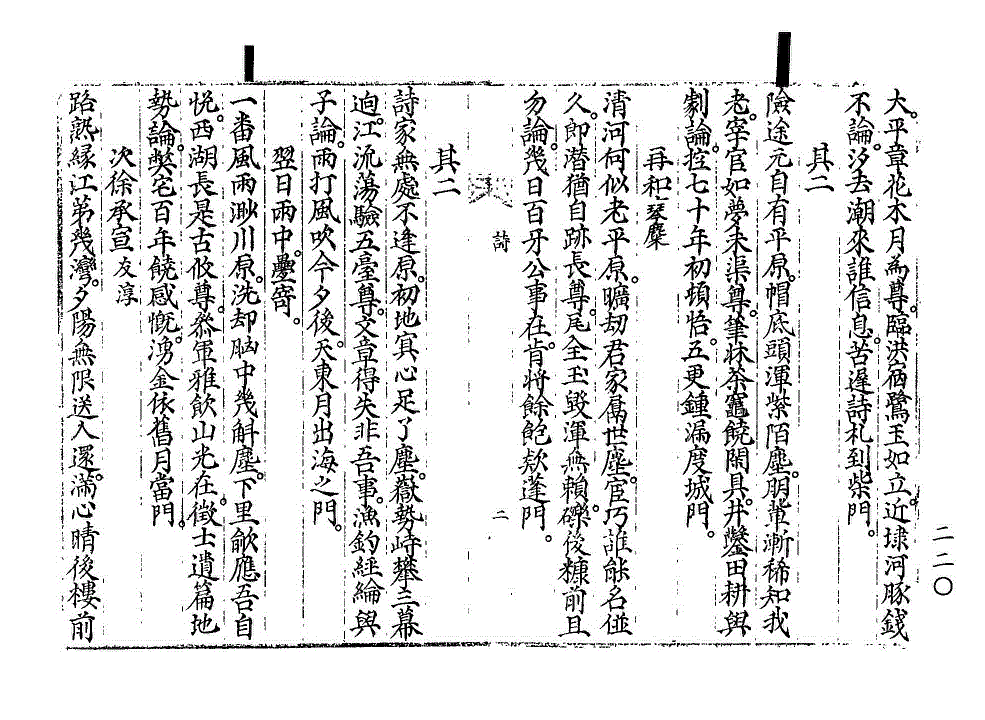 大。平章花木月為尊。臨洪宿鷺玉如立。近埭河豚錢
不論。汐去潮來誰信息。苦遲詩札到柴門。
其二
險途元自有平原。帽底頭渾紫陌塵。朋輩漸稀知我
老。宰官如夢未渠尊。筆牀茶竈饒閒具。井鑿田耕與
劇論。控七十年初頓悟。五更鍾漏度城門。
再和琴麋
清河何似老平原。曠劫君家屬世塵。官巧誰能名位
久。即潛猶自跡長尊。瓦全玉毀渾無賴。礫後糠前且
勿論。幾日百牙公事在。肯將餘飽欬蓬門。
詩
二
其二
詩家無處不逢原。初地寘心足了塵。嶽勢峙攀三幕
逈。江流蕩驗五臺尊。文章得失非吾事。漁釣經綸與
子論。雨打風吹今夕後。天東月出海之門。
翌日雨中。疊寄。
一番風雨渺川原。洗却胸中幾斛塵。下里歈應吾自
悅。西湖長是古攸尊。叅軍雅飲山光在。徵士遺篇地
勢論。獘宅百年饒感慨。湧金依舊月當門。
次徐承宣友淳
路熟緣江第幾灣。夕陽無限送人還。滿心晴後樓前
二二〇